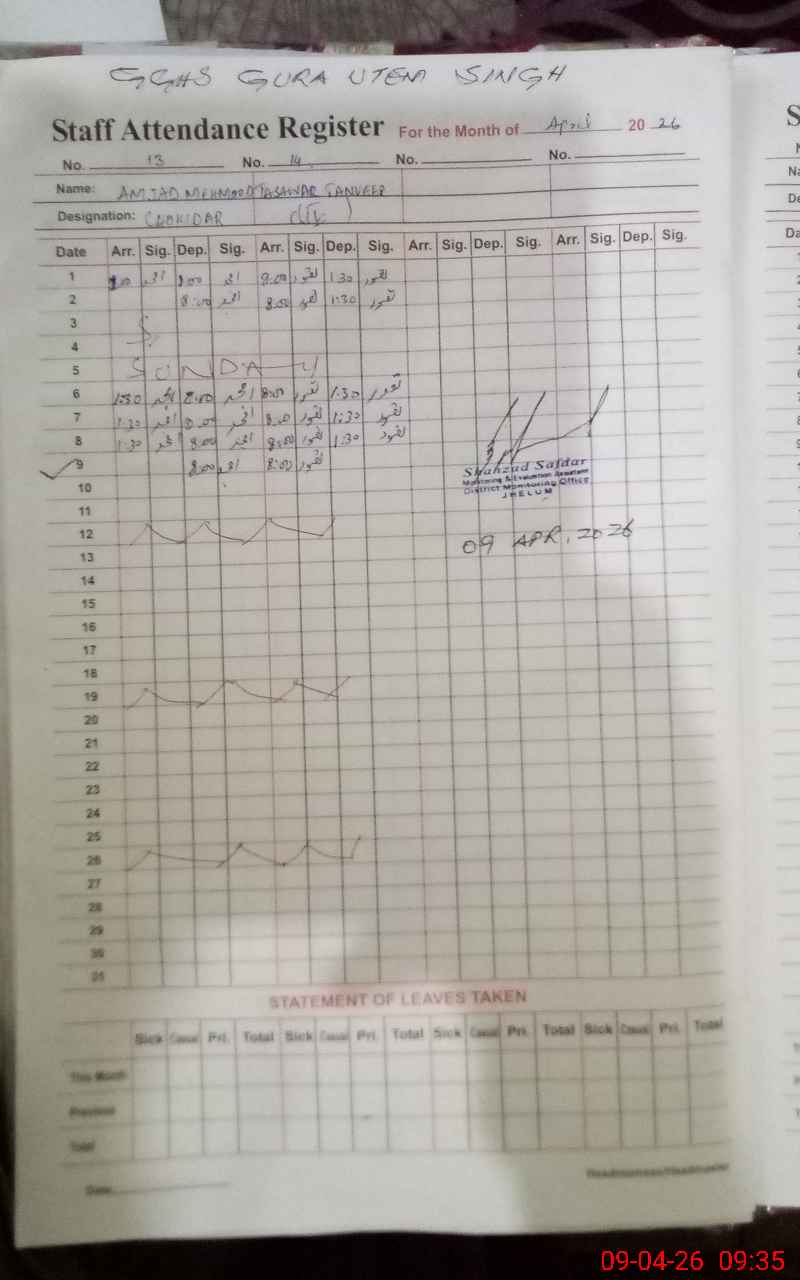 GGHS GURA UTEM SINGH
Staff Attendance Register For the Month of April 2026
No. 13 No. 14 No. No.
Name: AMJAD MEHMOOD TASAWAR TANVEER
Designation: CHOKIDAR
Date Arr. Sig. Dep. Sig. Arr. Sig. Dep. Sig. Arr. Sig. Dep. Sig. Arr. Sig. Dep. Sig.
1 8:00 8:00 1:30
2 8:00 8:00 1:30
3
4
5 SUNDAY
6 1:30 8:00 8:00 1:30
7 1:30 8:00 8:00 1:30
8 1:30 8:00 8:00 1:30
9 8:00 8:00
Shahzad Safdar
Monitoring & Evaluation Assistant
District Monitoring Office
JHELUM
10
11
12
09 APR, 2026
13
14
15
16
17
18
19
20
21
22
23
24
25
26
27
28
29
30
31
STATEMENT OF LEAVES TAKEN
Sick Casual Pri. Total Sick Casual Pri. Total Sick Casual Pri. Total Sick Casual Pri. Total
This Month
Previous
Total
Date
Headmistress/Headmaster
09-04-26 09:35